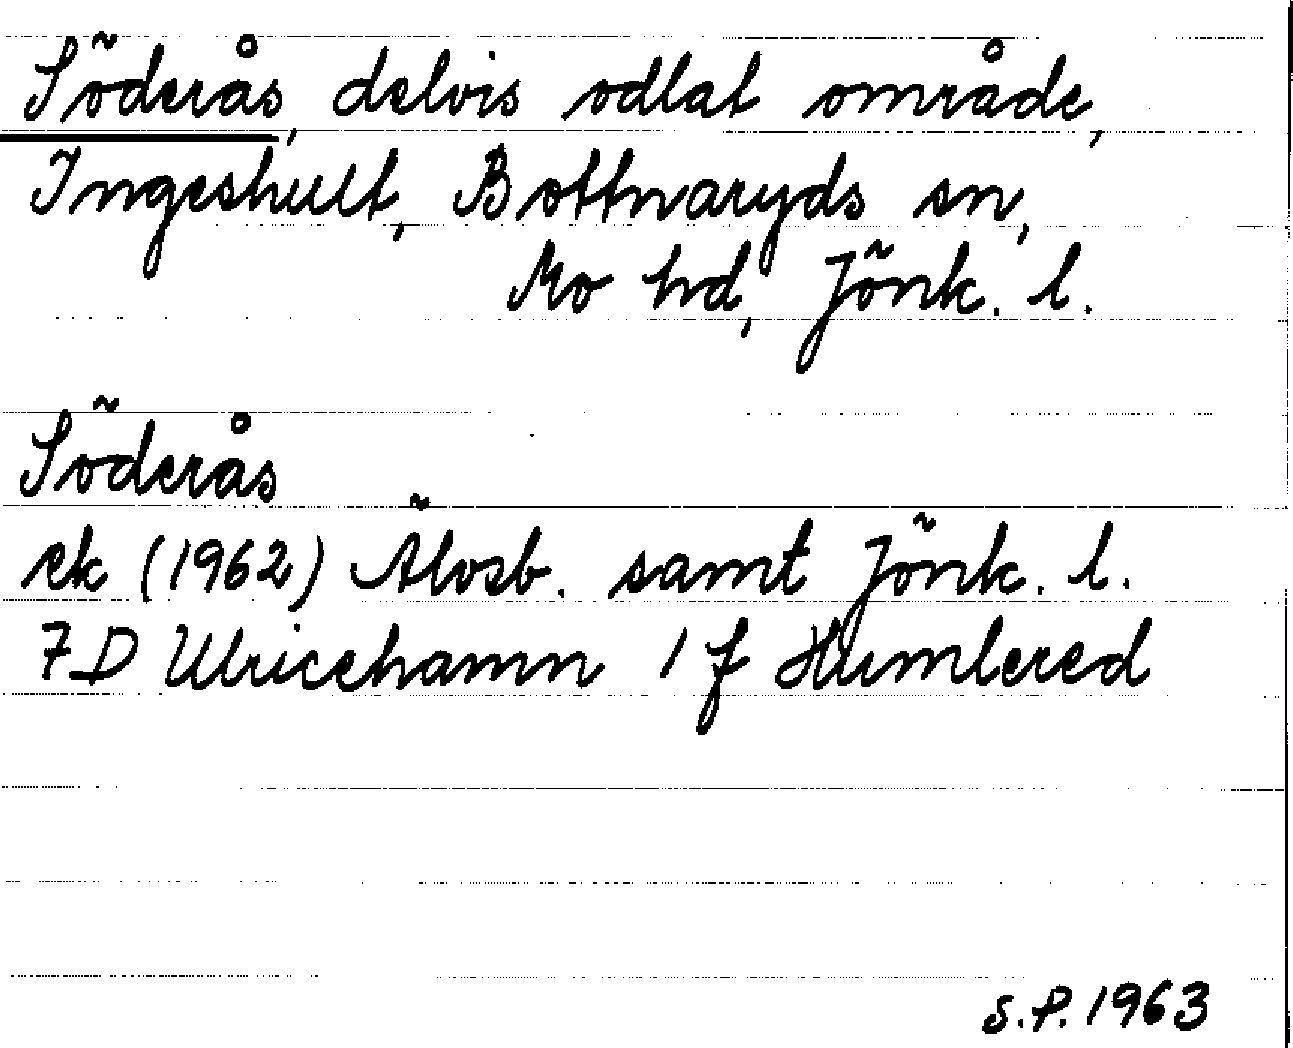 Söderås, delvis odlat område,
Ingeshult, Bottnaryds sn,
Mo hd, Jönk. l.
Söderås
ek (1962) Älvsb. samt Jönk. l.
7D Ulricehamn 1 f Humlered
S.P. 1963